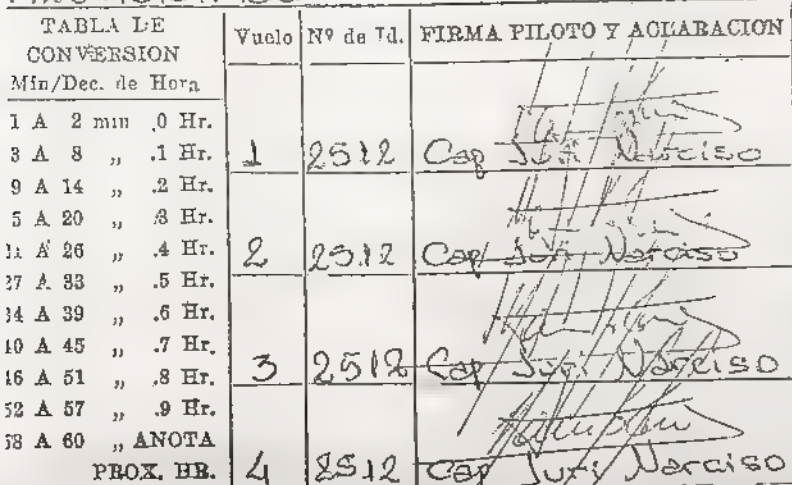 TABLA DE CONVERSION
Min/Dec. de Hora
Vuelo Nº de Id. FIRMA PILOTO Y ACLARACION
1 A 2 min .0 Hr.
3 A 8 „ .1 Hr.
1 2512 Cap Juri Narciso
9 A 14 „ .2 Hr.
5 A 20 „ .3 Hr.
21 A 26 „ .4 Hr.
2 2512 Cap Juri Narciso
27 A 33 „ .5 Hr.
34 A 39 „ .6 Hr.
40 A 45 „ .7 Hr.
3 2512 Cap Juri Narciso
46 A 51 „ .8 Hr.
52 A 57 „ .9 Hr.
58 A 60 „ ANOTA
PROX. HR.
4 2512 Cap Juri Narciso